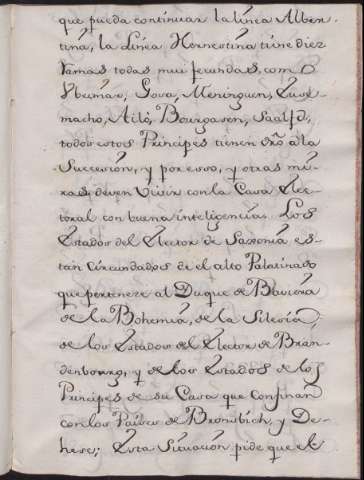 que pueda continuar la línea Alben-
tina, la Linéa Hornestina tiene diez
ramas todas mui fecundas, como
Vveimar, Gova, Meninguen,
macho, Ailò, Bourgasen, Saalfd,
todos estos Principes tienen dro àla
Succesión, y por esso, y otras mi-
ras deven Vivir con la Casa Elec-
toral con buena inteligencia. Los
Estados del Elector de Saxonia es-
tan Circundados de el alto Palatinado
que pertenece al Duque de Baviera
de la Bohemia, de la Silesia,
de los Estados del Elector de Bran-
denbourg, y de los Estados de los
Principes de su Casa que confinan
con los Paises de Bronsbich, y De-
hese; Esta Situación pide que el